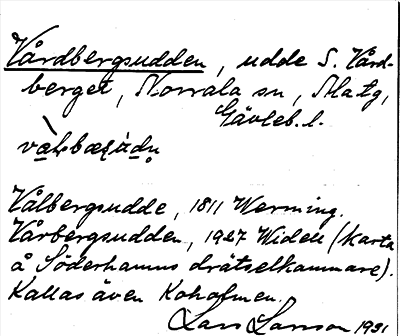 Vårdbergsudden, udde S. Vård-
berget, Norrala sn,
Gävleb. l.
Vålbergsudde, 1811 Wenning.
Vårbergsudden, 1927 Widell (karta
å Söderhamns drätselkammare).
Kallas även Koholmen.
Lars Larson 1931